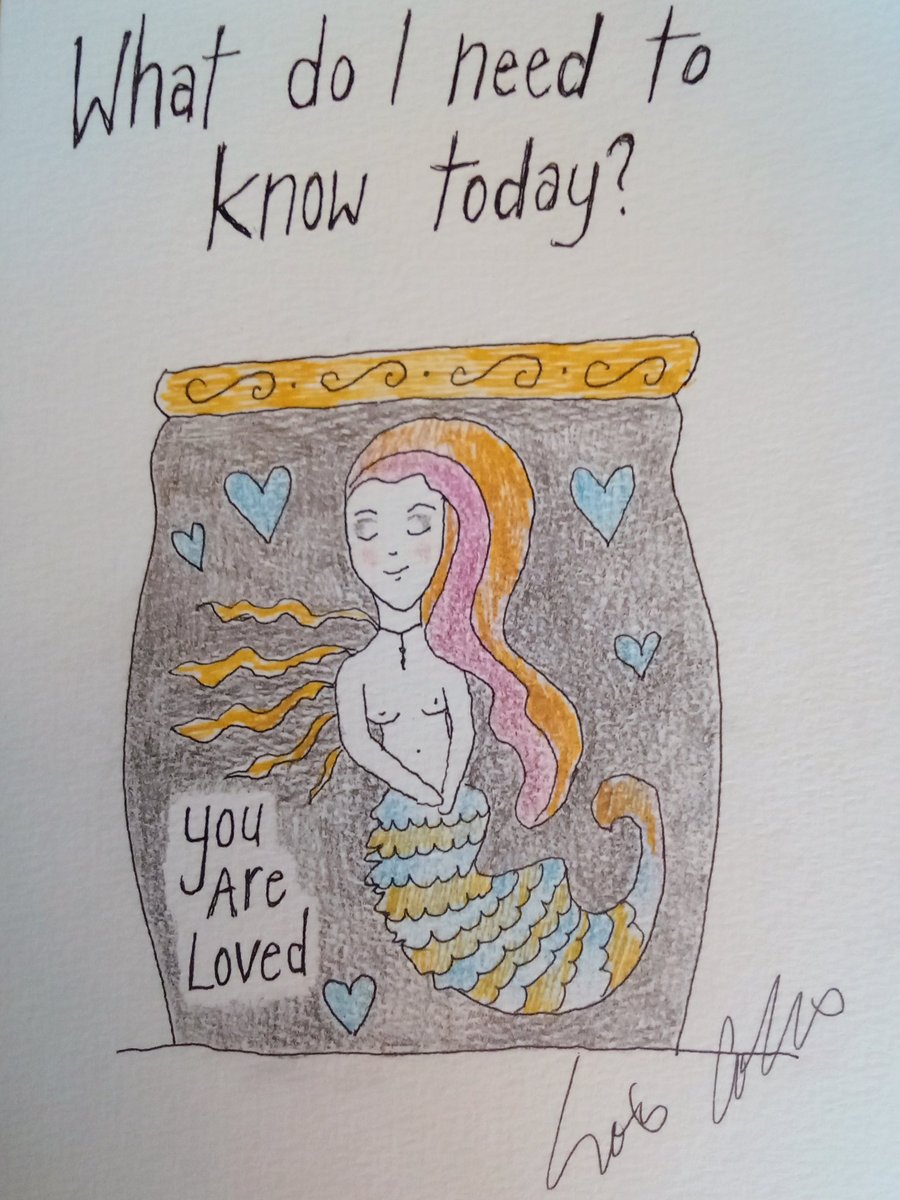 What do I need to
know today?
you
Are
Loved